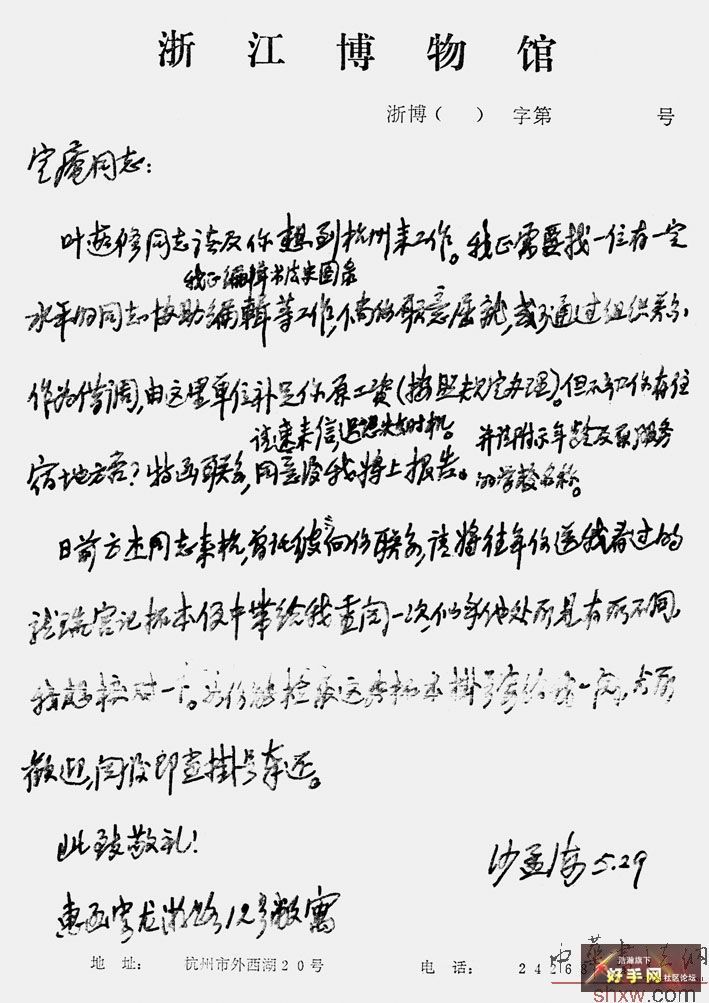 浙江博物馆
浙博（ ） 字第 号
定庵同志：
叶 同志谈及你想到杭州来工作。我正需要找一位有一定
我正编辑书法史图录
水平的同志协助编辑等工作，倘你愿意屈就，或可通过组织
作为借调，由这里单位补足你原工资（按照规定办理）。但不知你有住
请速来信，迟恐失时机。 并请附示年龄及原服务
宿地方否？特函联系，同意后我将上报告。 的学校名称。
日前方 同志来杭，曾托彼向你联系，请将往年你送我看过的
龙瑞宫记拓本便中带给我重阅一次，似乎他处所见有所不同，
我想核对一下。 你 检 这 拓本挂号寄给 一阅，亦所
欢迎，阅后即当挂号奉还。
此致敬礼！
沙孟海 5.29
惠函 龙游路12号敝寓
地 址： 杭州市外西湖20号 电 话： 2 4 2 6 8
中华书法网
shxw.com
浩瀚旗下
好手网 社区论坛